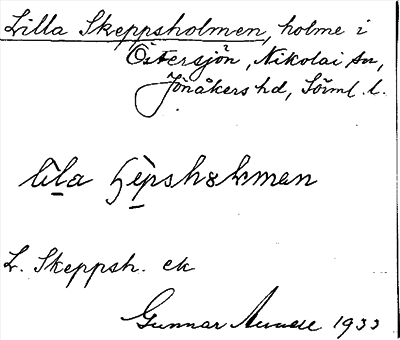 Lilla Skeppsholmen, holme i
Östersjön, Nikolai sn,
Jönåkers hd, Söml. l.
lila
L. Skeppsh. ek
Gunnar 1933